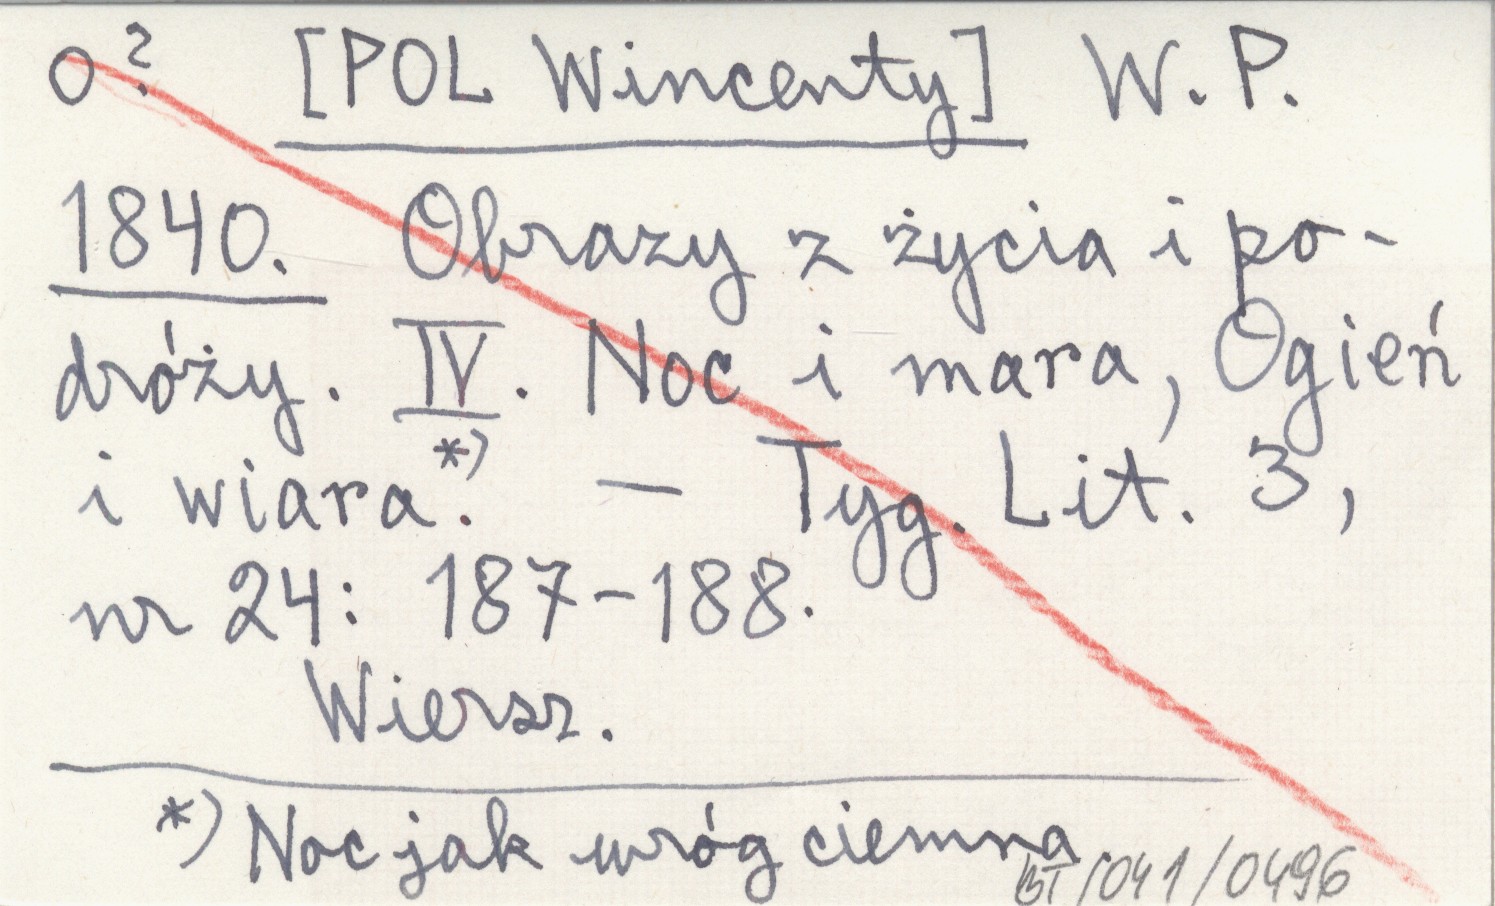 o? [POL Wincenty] W. P.
1840. Obrazy z życia i po-
dróży. IV. Noc i mara, Ogień
i wiara.*) — Tyg. Lit. 3,
nr 24: 187-188.
Wiersz.
*) Noc jak wróg ciemna
BT/041/0496